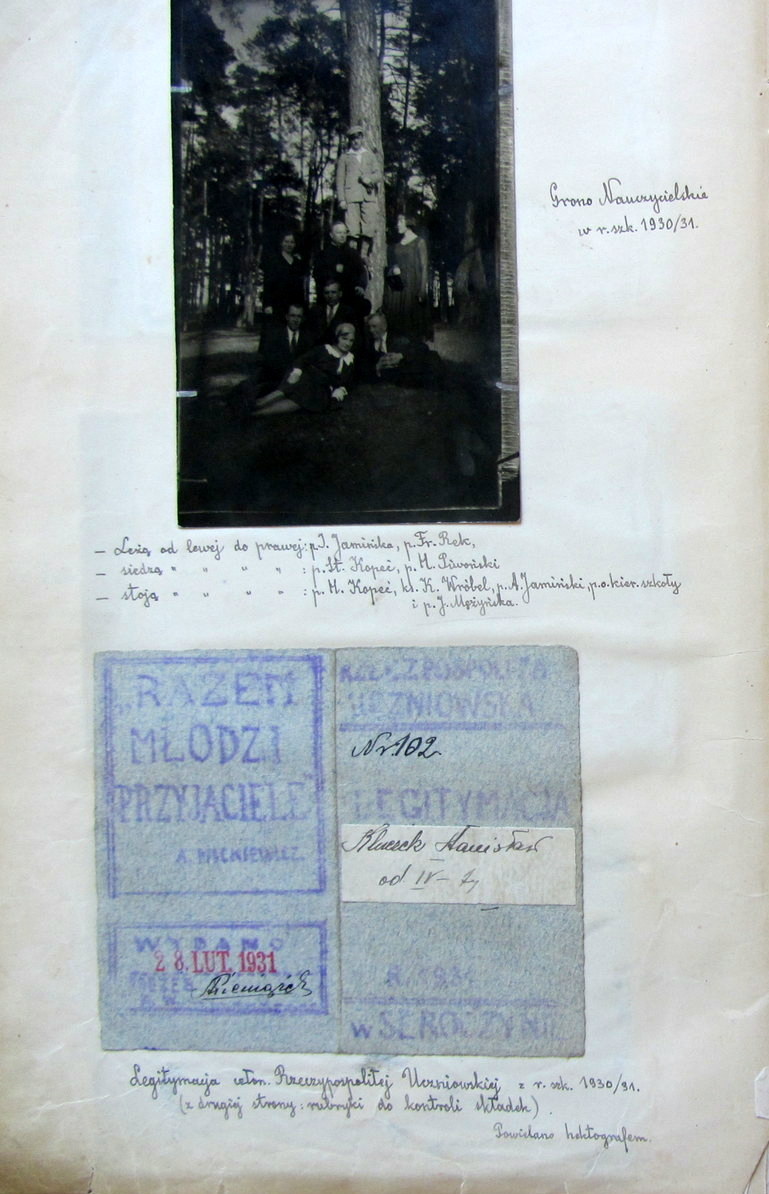 Grono Nauczycielskie
w r. szk. 1930/31.
– Leżą od lewej do prawej: p. J. Jamińska, p. Fr. Rek,
– siedzą " " " " : p. St. Kopeć, p. M. Piwoński
– stoją " " " " : p. M. Kopeć, ks. K. Wróbel, p. A. Jamiński, p.o. kier. szkoły
i p. J. Mężyńska.
„RAZEM
MŁODZI
PRZYJACIELE"
A. MICKIEWICZ.
WYDANO
28. LUT. 1931
RZECZPOSPOLITA
UCZNIOWSKA
Nr. 102.
LEGITYMACJA
Stanisław
od IV –
R. 1931
w SEROCZYNIE
Legitymacja człon. Rzeczypospolitej Uczniowskiej z r. szk. 1930/31.
(z drugiej strony: rubryki do kontroli składek).
Powielano hektografem.